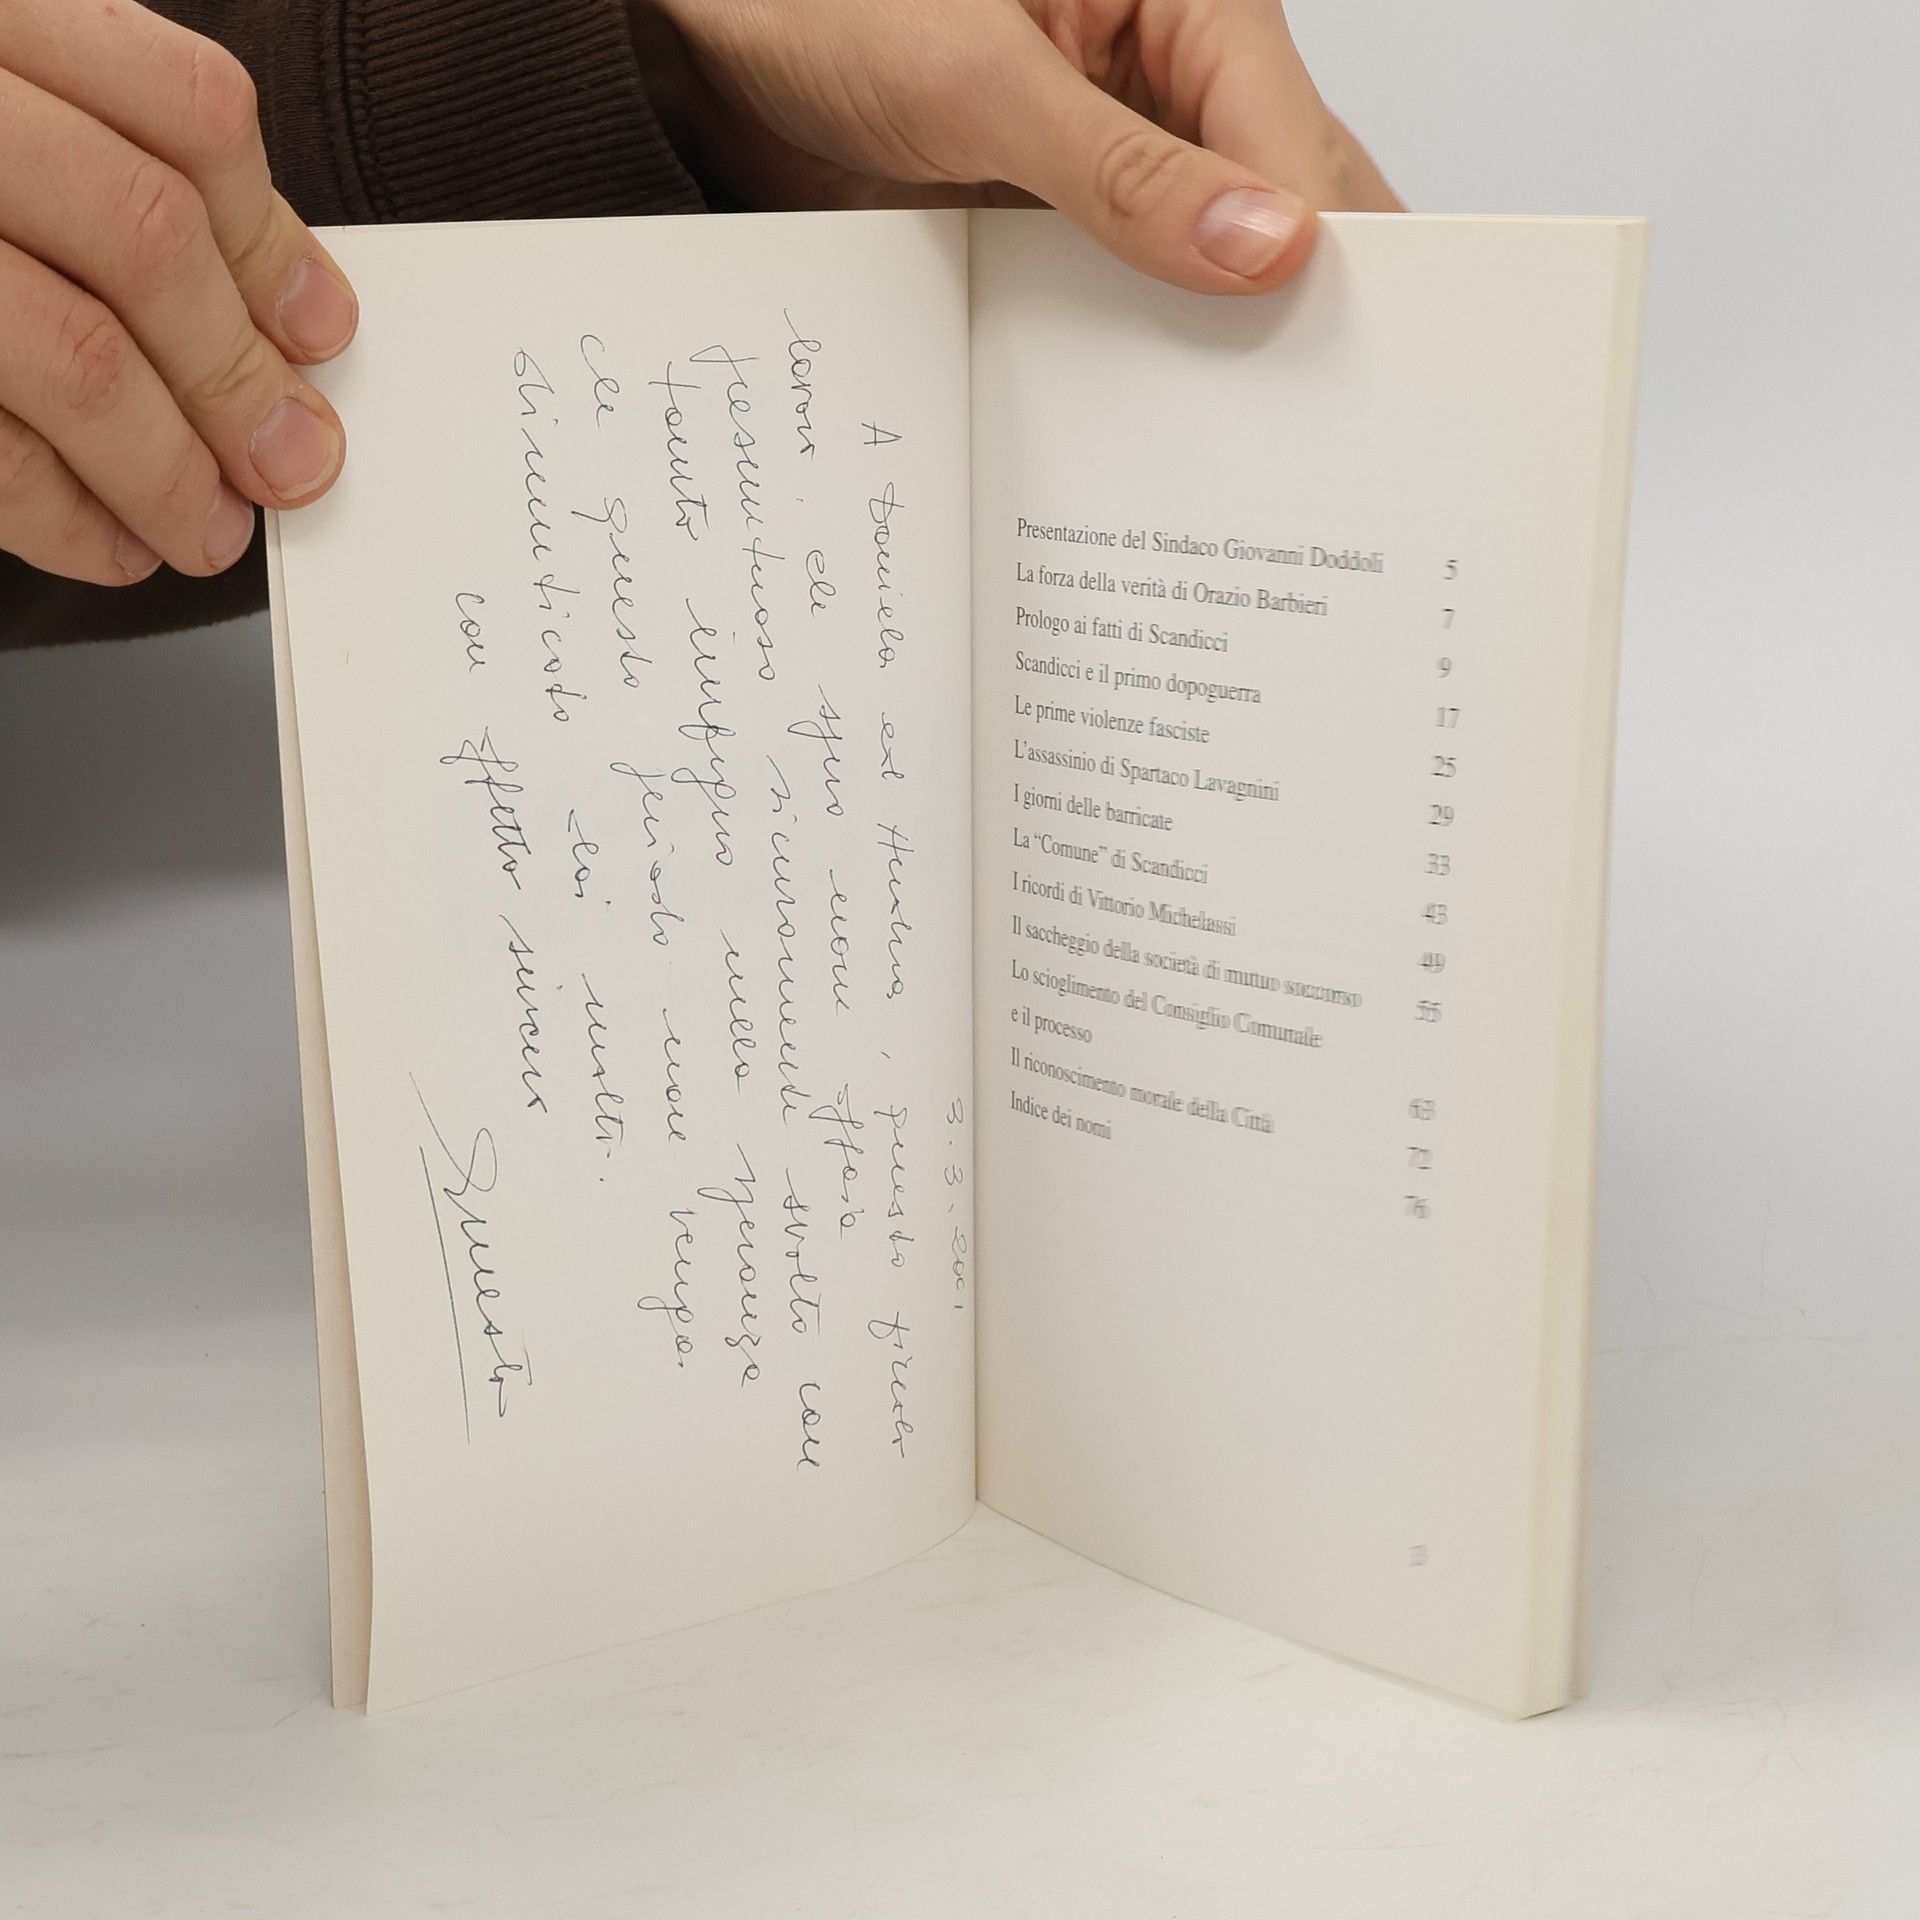 3.3.2001
A Daniela ed Andrea, questo piccolo
lavoro, che spero non
presuntuoso sicuramente svolto con
tanto impegno nella speranza
che questo periodo non venga
dimenticato mai.
con affetto sincero
Ernesto
Presentazione del Sindaco Giovanni Doddoli 5
La forza della verità di Orazio Barbieri 7
Prologo ai fatti di Scandicci 9
Scandicci e il primo dopoguerra 17
Le prime violenze fasciste 25
L'assassinio di Spartaco Lavagnini 29
I giorni delle barricate 33
La “Comune” di Scandicci 43
I ricordi di Vittorio Michelassi 49
Il saccheggio della società di mutuo soccorso 55
Lo scioglimento del Consiglio Comunale
e il processo 63
Il riconoscimento morale della Città 72
Indice dei nomi 76
3